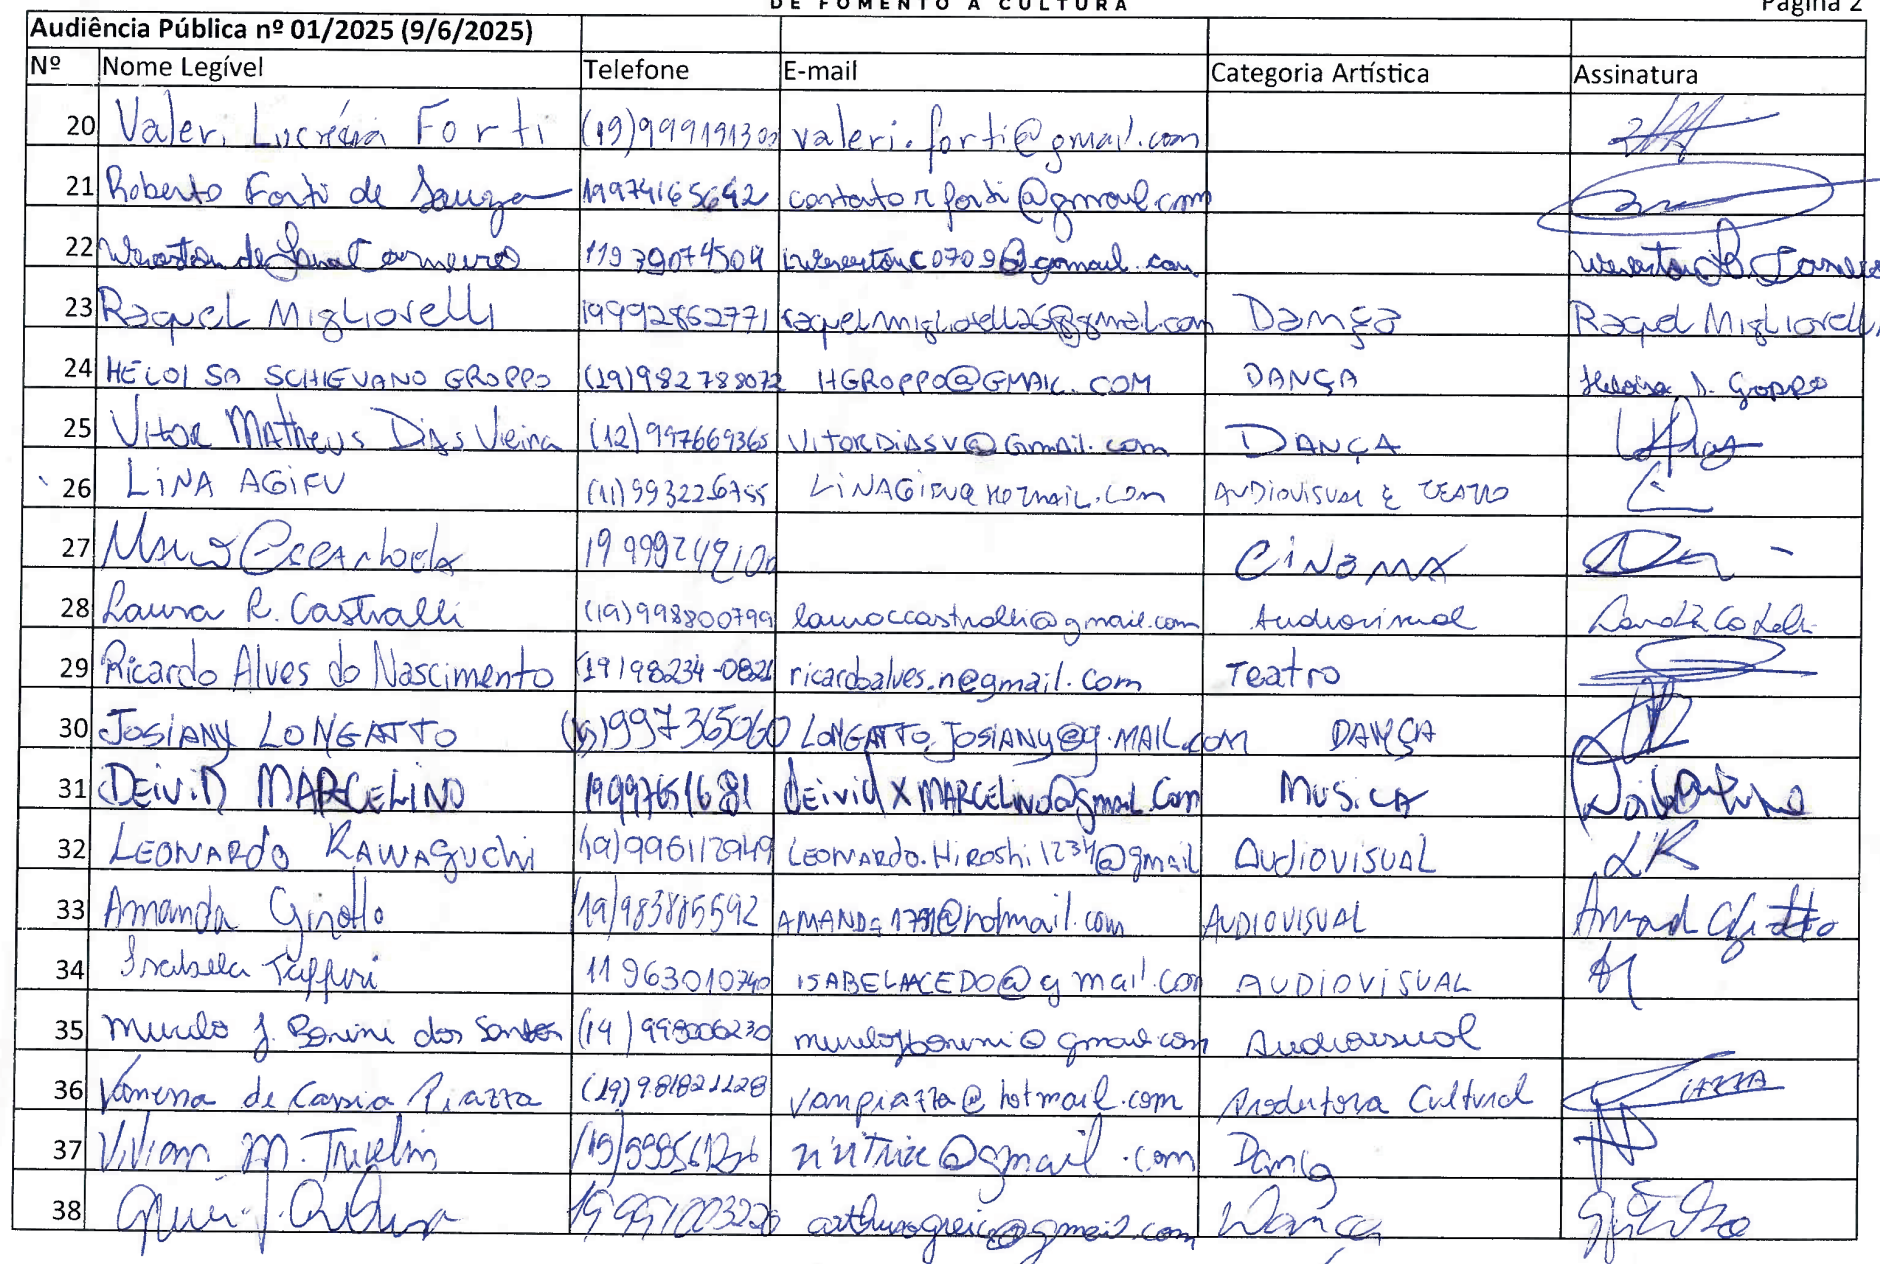 DE FOMENTO À CULTURA
Página 2
Audiência Pública nº 01/2025 (9/6/2025)
Nº Nome Legível Telefone E-mail Categoria Artística Assinatura
20 Valeri Lucrécia Forti (19)999191300 valeri.forti@gmail.com
21 Roberto Forti de Souza 19974165642 contatorforti@gmail.com
22 Weverton de Carneiro 11939074504 wevertonc07096@gmail.com
23 Raquel Migliorelli 19992862771 raquelmigliorelli26@gmail.com Dança Raquel Migliorelli
24 HELOISA SCHIEVANO GROPPO (19)982788072 HGROPPO@GMAIL.COM DANÇA Heloisa S. Groppo
25 Vitor Matheus Dias Vieira (12)997669365 VITORDIASV@Gmail.com DANÇA
26 LINA AGIFU (11)993226755 LINAGIFU@HOTMAIL.COM AUDIOVISUAL E TEATRO
27 CINEMA
28 Laura R. Castralli (19)998800799 lauraccastralli@gmail.com Audiovisual
29 Ricardo Alves do Nascimento (19)98234-0821 ricardoalves.n@gmail.com Teatro
30 JOSIANY LONGATTO (19)997365060 LONGATTO.JOSIANY@G.MAIL.COM DANÇA
31 DEIVID MARCELINO 19997651681 deividXMARCELINO@gmail.com MUSICA
32 LEONARDO KAWAGUCHI (19)996112949 LEONARDO.Hiroshi1234@gmail AUDIOVISUAL LK
33 Amanda Girotto (19)983885592 @hotmail.com AUDIOVISUAL
34 Isabela Taffuri 11963010740 ISABELACEDO@gmail.com AUDIOVISUAL
35 Murilo J. Bonini dos Santos (19)998006230 murilojbonini@gmail.com Audiovisual
36 Vanessa de Cassia Piazza (19)981821128 vanpiazza@hotmail.com Produtora Cultural
37 Vivian M. Trivelin @gmail.com Dança
38 19991003220 @gmail.com Dança